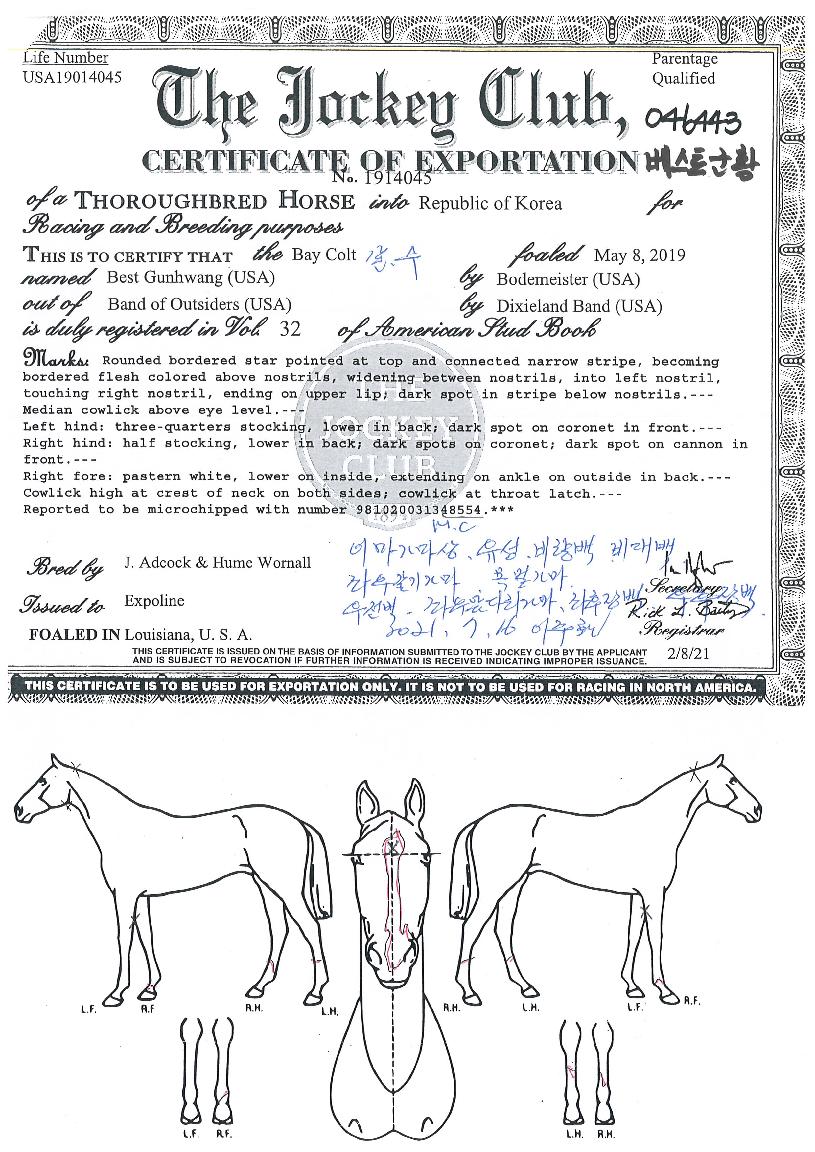 Life Number
USA19014045
Parentage
Qualified
The Jockey Club,
046443
CERTIFICATE OF EXPORTATION
베스트군황
No. 1914045
of a THOROUGHBRED HORSE into Republic of Korea for
Racing and Breeding purposes
THIS IS TO CERTIFY THAT the Bay Colt foaled May 8, 2019
named Best Gunhwang (USA) by Bodemeister (USA)
out of Band of Outsiders (USA) by Dixieland Band (USA)
is duly registered in Vol. 32 of American Stud Book
Marks: Rounded bordered star pointed at top and connected narrow stripe, becoming
bordered flesh colored above nostrils, widening between nostrils, into left nostril,
touching right nostril, ending on upper lip; dark spot in stripe below nostrils.---
Median cowlick above eye level.---
Left hind: three-quarters stocking, lower in back; dark spot on coronet in front.---
Right hind: half stocking, lower in back; dark spots on coronet; dark spot on cannon in
front.---
Right fore: pastern white, lower on inside, extending on ankle on outside in back.---
Cowlick high at crest of neck on both sides; cowlick at throat latch.---
Reported to be microchipped with number 981020031348554.***
THE
JOCKEY
CLUB
1894
M.C
유성 비량백
Bred by J. Adcock & Hume Wornall
Secretary
Issued to Expoline
2021. 7. 16
Registrar
FOALED IN Louisiana, U. S. A.
2/8/21
THIS CERTIFICATE IS ISSUED ON THE BASIS OF INFORMATION SUBMITTED TO THE JOCKEY CLUB BY THE APPLICANT
AND IS SUBJECT TO REVOCATION IF FURTHER INFORMATION IS RECEIVED INDICATING IMPROPER ISSUANCE.
THIS CERTIFICATE IS TO BE USED FOR EXPORTATION ONLY. IT IS NOT TO BE USED FOR RACING IN NORTH AMERICA.
L.F. R.F R.H. L.H. R.H. L.H. L.F. R.F.
L.F. R.F. L.H. R.H.